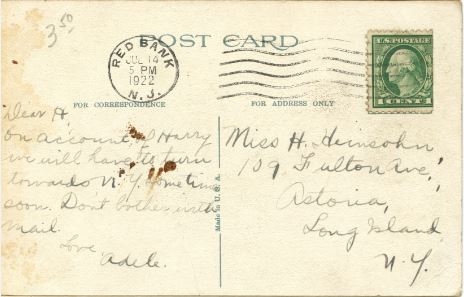 3.50
POST CARD
RED BANK
JUL 14
5 PM
1922
N.J.
FOR CORRESPONDENCE
FOR ADDRESS ONLY
U.S. POSTAGE
1 CENT 1
Dear H,
On account of Harry
we will have to turn
towards N.Y. sometime
soon. Dont bother with
mail.
Love
Adele.
Made in U.S.A.
Miss H. Heinsohn
109 Fulton Ave,
Astoria,
Long Island
N.Y.